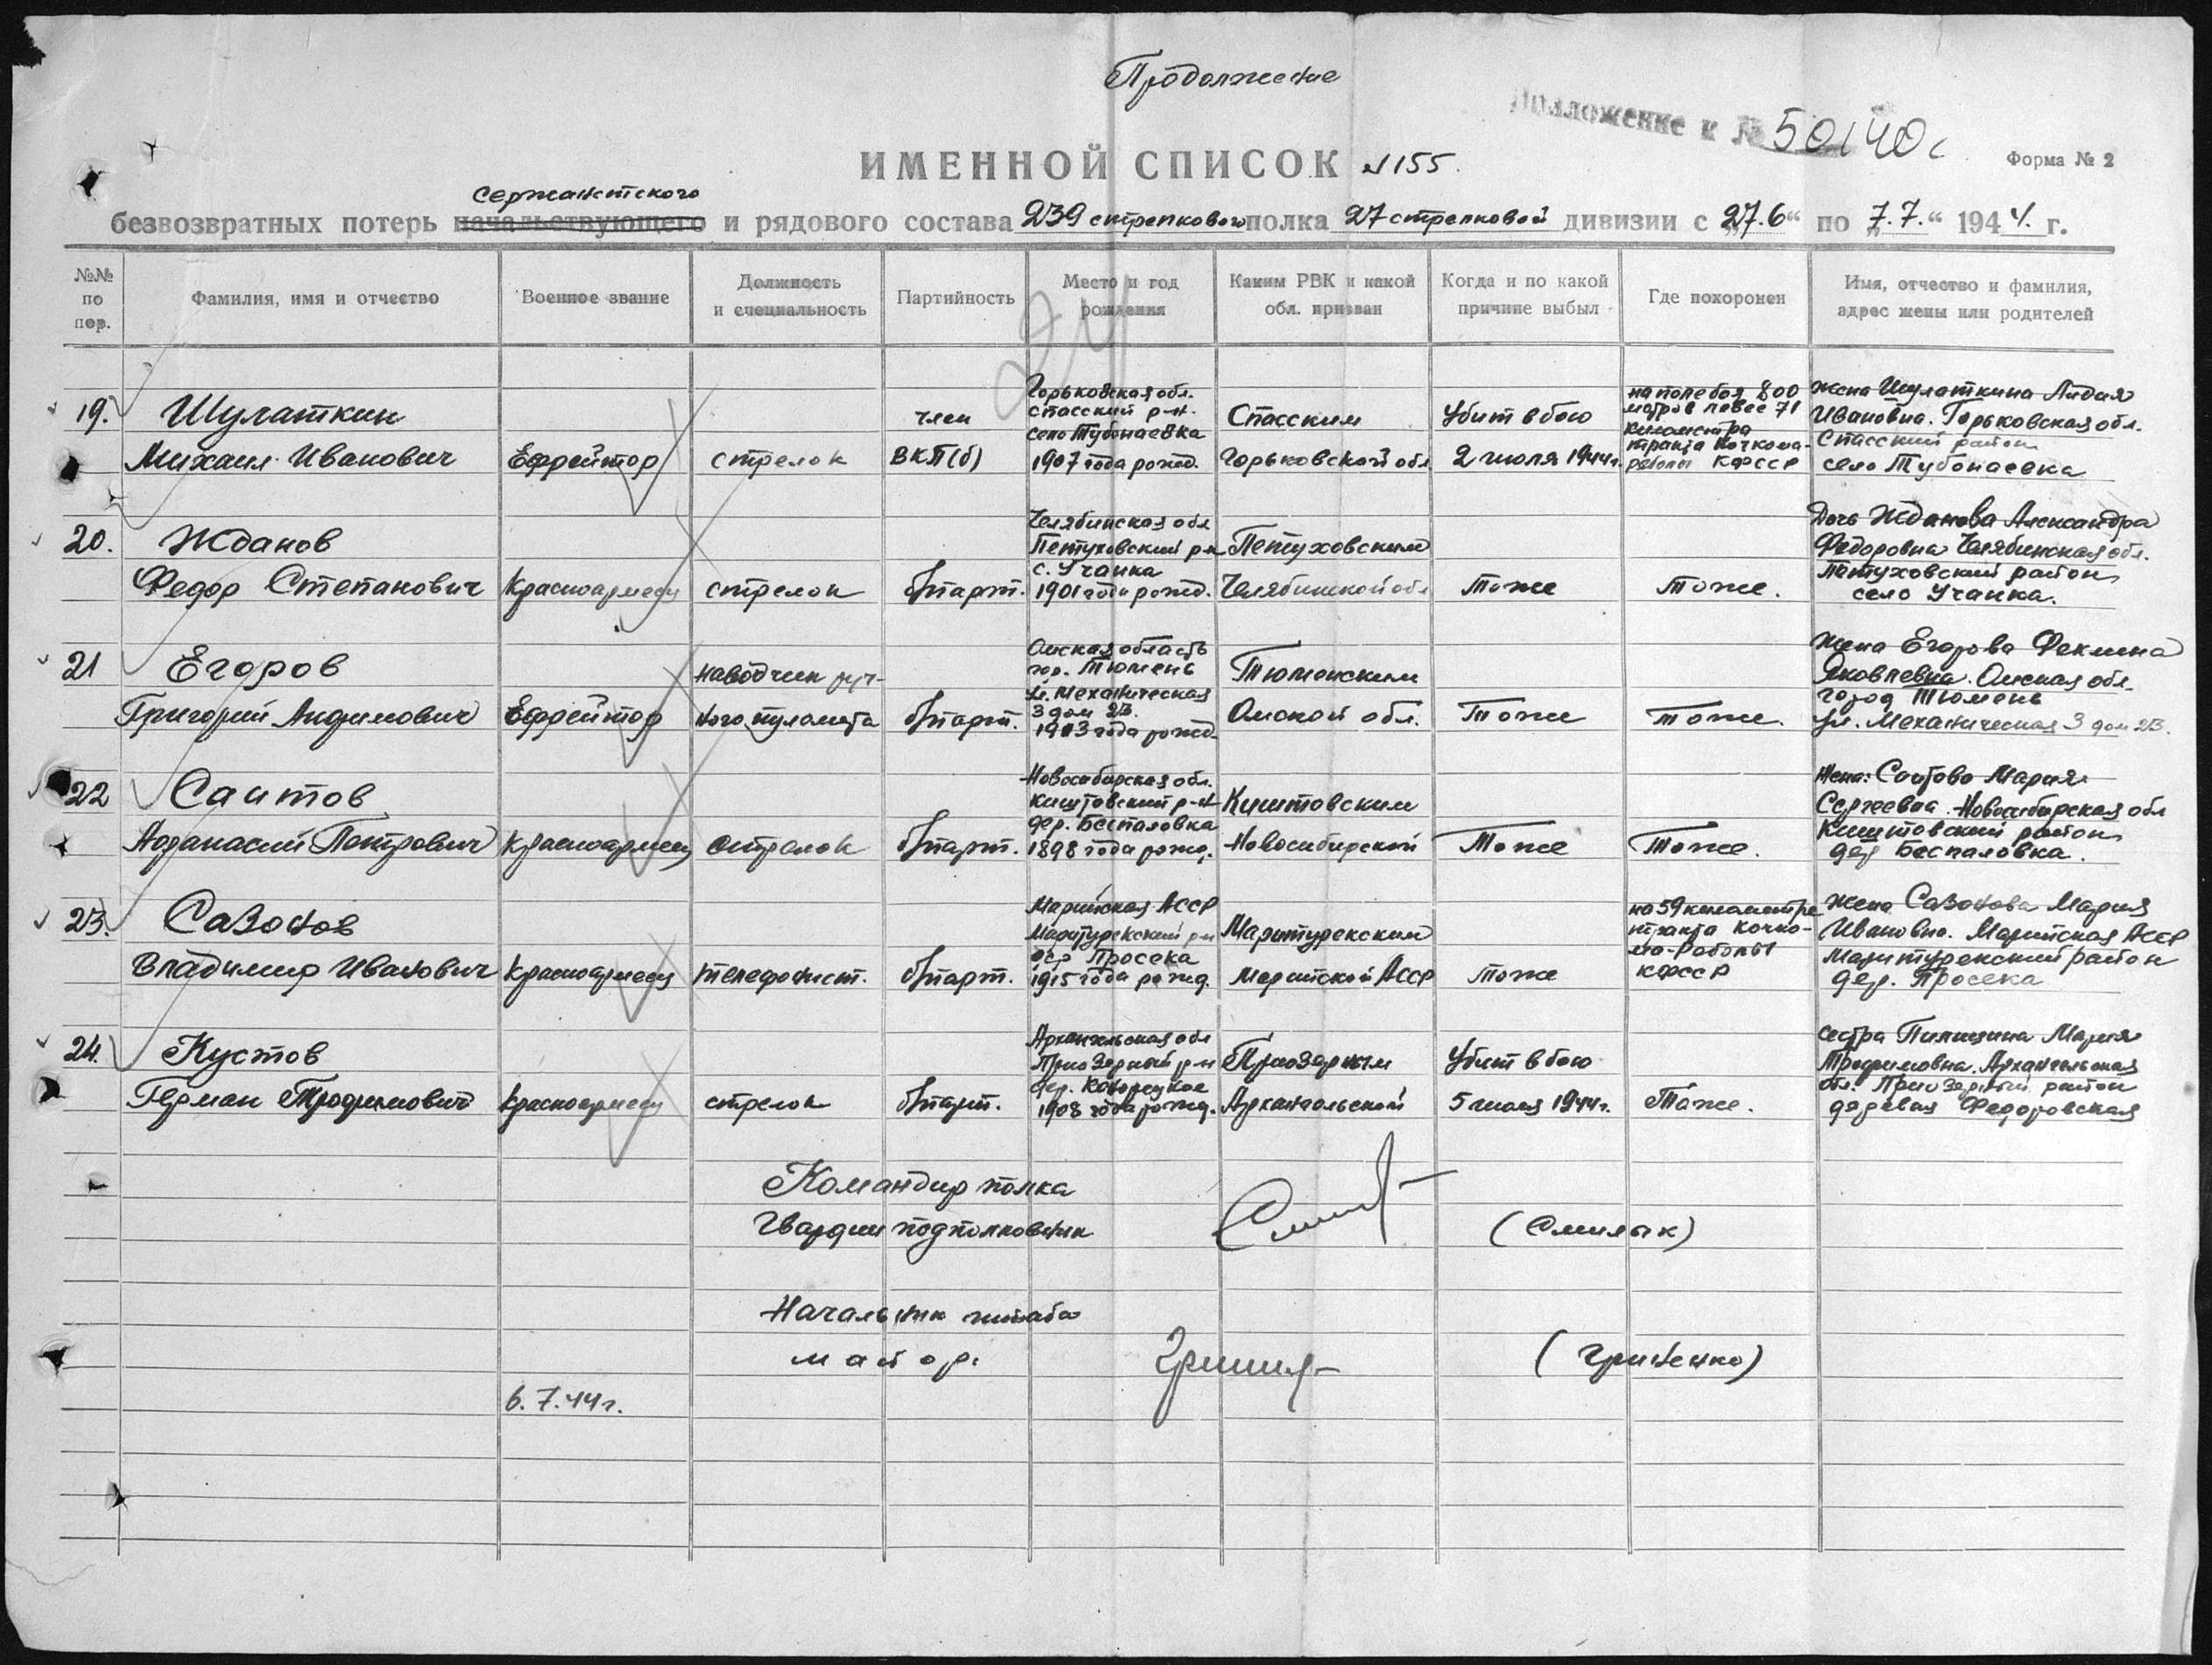 Продолжение
Приложение к № 50140с
ИМЕННОЙ СПИСОК №155.
Форма № 2
сержантского
безвозвратных потерь начальствующего и рядового состава 239 стрелкового полка 27 стрелковой дивизии с „27.6“ по „7.7.“ 1944. г.
№№ по пор.
Фамилия, имя и отчество
Военное звание
Должность и специальность
Партийность
Место и год рождения
Каким РВК и какой обл. призван
Когда и по какой причине выбыл
Где похоронен
Имя, отчество и фамилия, адрес жены или родителей
19.
Шулаткин
Михаил Иванович
Ефрейтор
стрелок
член
ВКП(б)
Горьковская обл.
Спасский р-н.
село Тубонаевка
1907 года рожд.
Спасским
Горьковской обл
Убит в бою
2 июля 1944г.
на поле боя 800
метров левее 71
километра
тракта Кочкома-
реболы КФССР
жена Шулаткина Лидия
Ивановна. Горьковская обл.
Спасский район
село Тубонаевка
20.
Жданов
Федор Степанович
Красноармеец
стрелок
б/парт.
Челябинская обл
Петуховский р-н
с. Утчанка
1901 года рожд.
Петуховским
Челябинской обл
Тоже
Тоже.
Дочь Жданова Александра
Федоровна Челябинская обл.
Петуховский район
село Утчанка.
21
Егоров
Григорий Андреевич
Ефрейтор
наводчик руч-
ного пулемета
б/парт.
Омская область
гор. Тюмень
ул. Механическая
3 дом 23.
1913 года рожд.
Тюменским
Омской обл.
Тоже
Тоже.
Жена Егорова Феклина
Яковлевна. Омская обл.
город Тюмень
ул. Механическая 3 дом 23.
22
Саитов
Афанасий Петрович
Красноармеец
Стрелок
б/парт.
Новосибирская обл.
Кыштовский р-н
дер. Беспаловка
1898 года рожд.
Кыштовским
Новосибирской
Тоже
Тоже.
Жена: Саитова Мария
Сергеевна. Новосибирская обл
Кыштовский район
дер Беспаловка.
23.
Сазонов
Владимир Иванович
Красноармеец
телефонист.
б/парт.
Марийская АССР
Маритурекский р-н
дер Просека
1915 года рожд.
Маритурекским
Марийской АССР
Тоже
на 59 километре
тракта Кочко-
ма-Реболы
КФССР
Жена Сазонова Мария
Ивановна. Марийская АССР
Маритурекский район
дер. Просека
24.
Кустов
Герман Трофимович
Красноармеец
стрелок
б/парт.
Архангельская обл
Приозерный р-н
1908 года рожд.
Приозерным
Архангельской
Убит в бою
5 июля 1944г.
Тоже.
Сестра Пилицина Мария
Трофимовна. Архангельская
обл. Приозерный район
деревня Федоровская
Командир полка
Гвардии подполковник
(Смилык)
Начальник штаба
майор.
(Гриненко)
6.7.44г.